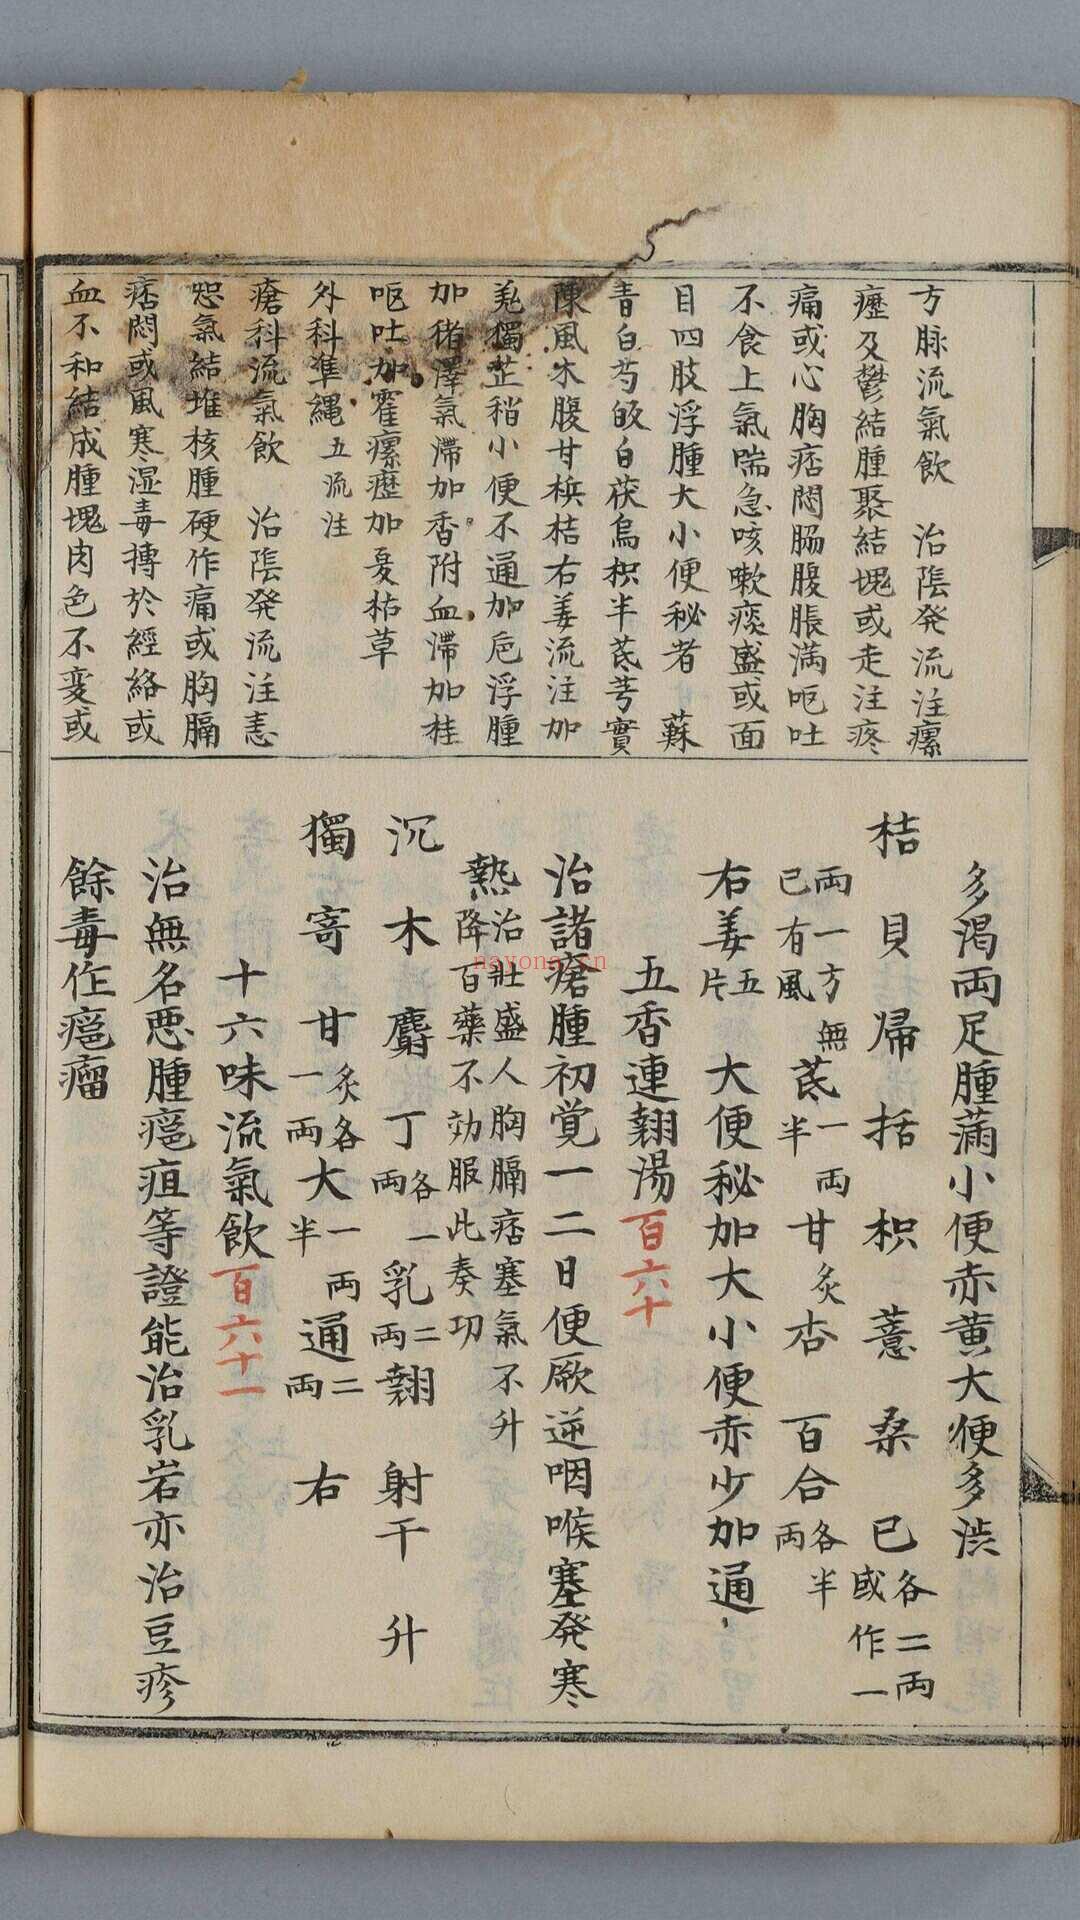 方脉流氣飲　治陰発流注瘰
癧及鬱結腫聚結塊或走注疼
痛或心胸痞悶腸腹脹満呕吐
不食上氣喘急咳嗽痰盛或面
目四肢浮腫大小便秘者　蘇
青白芍皈白茯烏枳半芪芎實
陳風木腹甘梹桔右姜流注加
羌獨芷稍小便不通加巵浮腫
加猪澤氣滯加香附血滯加桂
呕吐加霍瘰癧加夏枯草
外科準縄五流注
瘡科流氣飲　治陰発流注恚
怒氣結堆核腫硬作痛或胸膈
痞悶或風寒湿毒搏於經絡或
血不和結成腫塊肉色不変或
多渇両足腫滿小便赤黄大便多渋
桔貝帰括枳薏桑已各二両或作一
両一方無已有風芪一両半甘炙杏百合各半両
右姜五片　大便秘加大小便赤少加通
五香連翹湯百六十
治諸瘡腫初覚一二日便厥逆咽喉塞発寒
熱治壯盛人胸膈痞塞氣不升降百藥不効服此奏功
沉木麝丁各一両乳二両翹　射干　升
獨寄甘炙各一両大一両半通二両　右
十六味流氣飲百六十一
治無名悪腫癌疽等證能治乳岩亦治豆疹
餘毒作癌瘤
nayona.cn